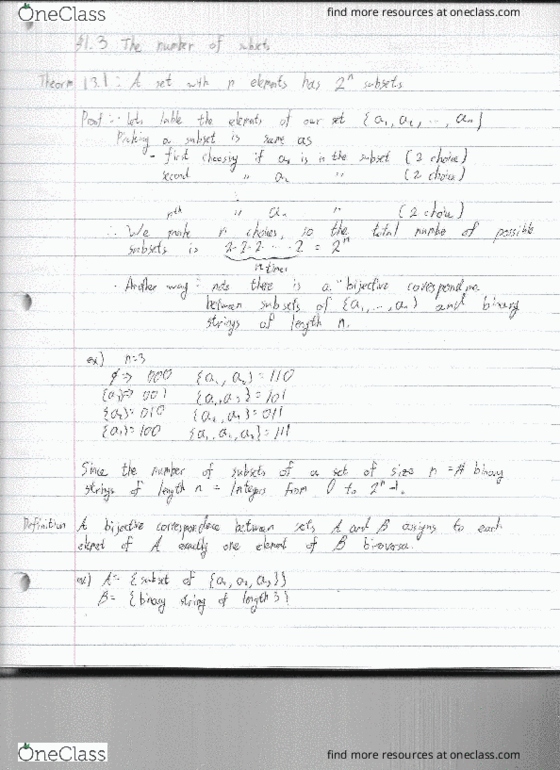 OneClass
find more resources at oneclass.com
§1.3 The number of subsets
Theorem 1.3.1: A set with n elements has 2ⁿ subsets
Proof: Lets lable the elements of our set {a₁, a₂, ..., aₙ}
Picking a subset is same as
- first choosing if a₁ is in the subset (2 choice)
second " a₂ " (2 choice)
⋮
nᵗʰ " aₙ " (2 choice)
∴ We make n choices, so the total number of possible
subsets is 2·2·2·...·2 = 2ⁿ
n times
· Another way: note there is a "bijective correspondence
between subsets of {a₁, ..., aₙ} and binary
strings of length n.
ex) n=3
∅ => 000 {a₁, a₂} = 110
{a₃} => 001 {a₁, a₃} = 101
{a₂} = 010 {a₂, a₃} = 011
{a₁} = 100 {a₁, a₂, a₃} = 111
Since the number of subsets of a set of size n = # binary
strings of length n = Integers from 0 to 2ⁿ-1.
Definition A bijective correspondence between sets A and B assigns to each
element of A exactly one element of B
ex) A = {subset of {a₁, a₂, a₃}}
B = {binary string of length 3}
OneClass
find more resources at oneclass.com